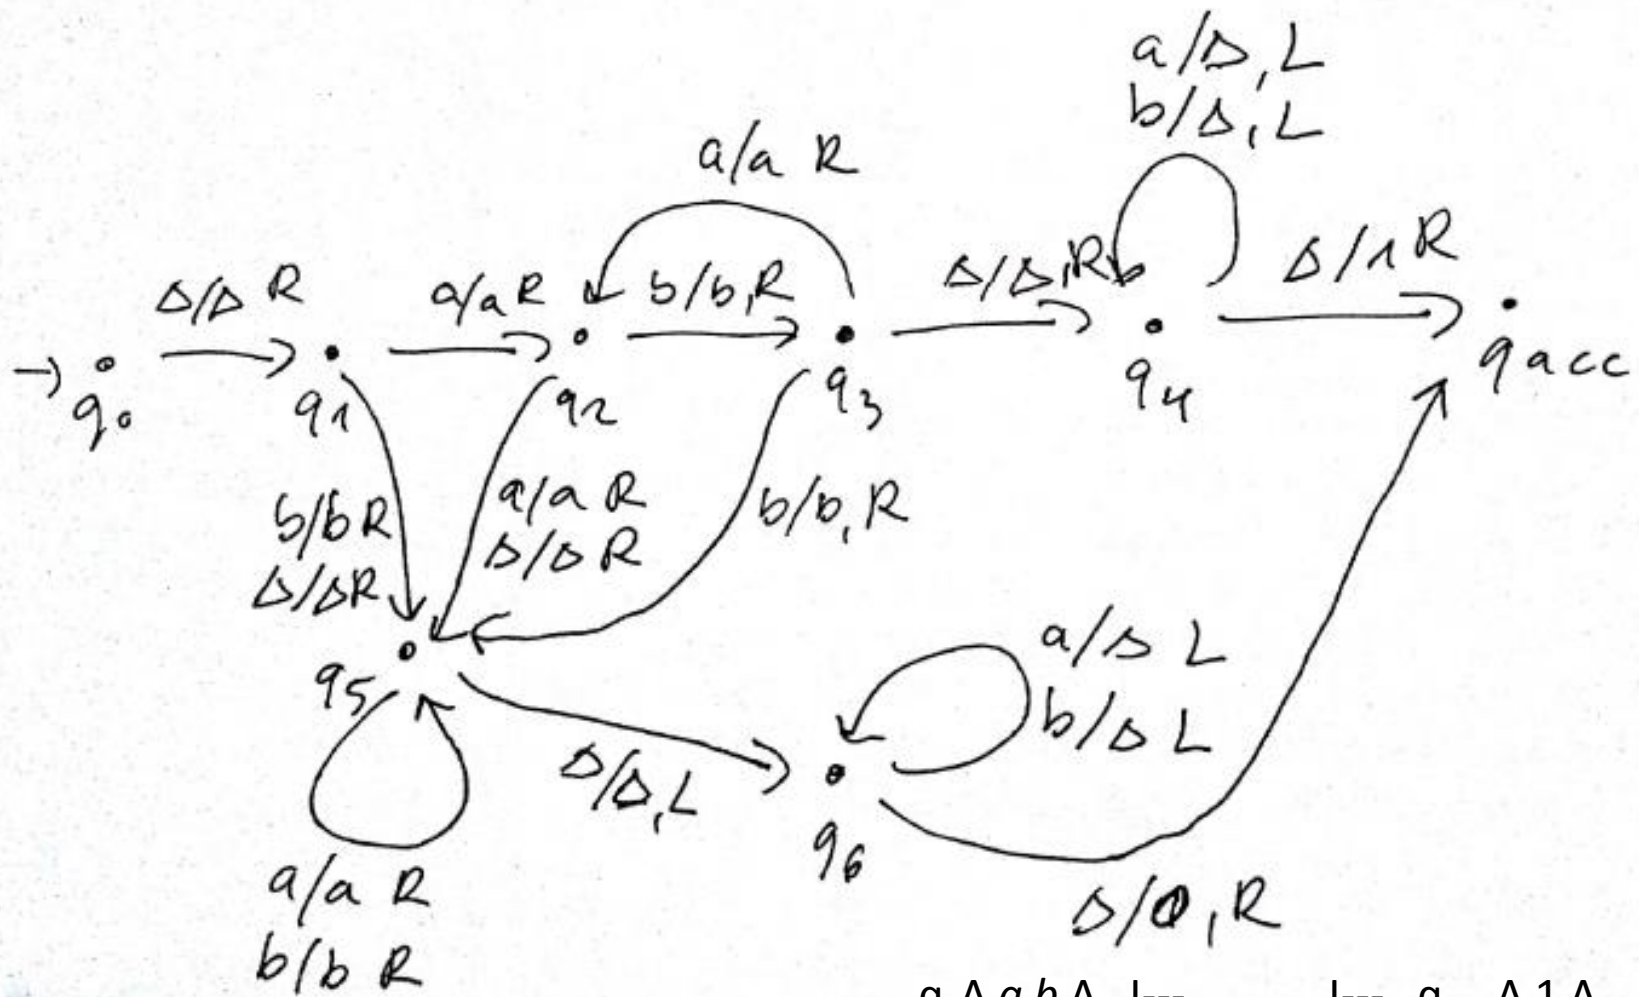 a/Δ, L
b/Δ, L
a/a R
Δ/Δ R
a/a R
b/b, R
Δ/Δ, R
Δ/1 R
→ q0
q1
q2
q3
q4
qacc
b/b R
Δ/Δ R
a/a R
Δ/Δ R
b/b, R
q5
a/Δ L
b/Δ L
Δ/Δ, L
q6
Δ/0, R
a/a R
b/b R